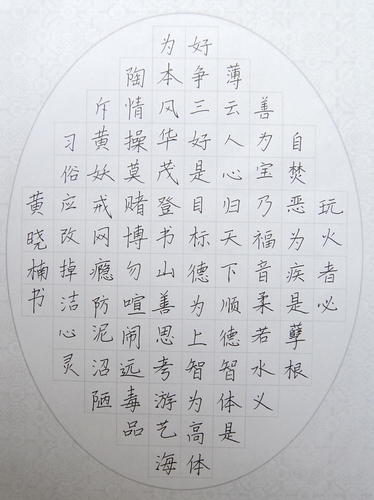 玩火者必
自焚恶为疾是孽根
善为宝乃福音柔若水义
薄云人心归天下顺德智体是
好争三好是目标德为上智为高体
为本风华茂登书山善思考游艺海
陶情操莫赌博勿喧闹远毒品
斥黄妖戒网瘾防泥沼陋
习俗应改掉洁心灵
黄晓楠书